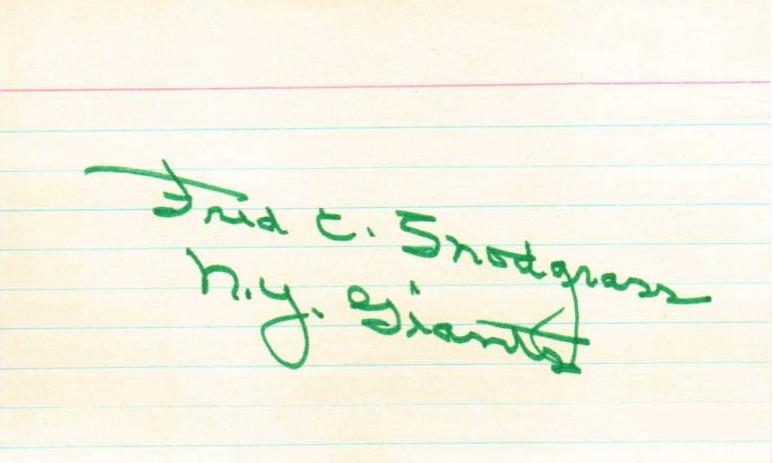 Fred C. Snodgrass
N.Y. Giants